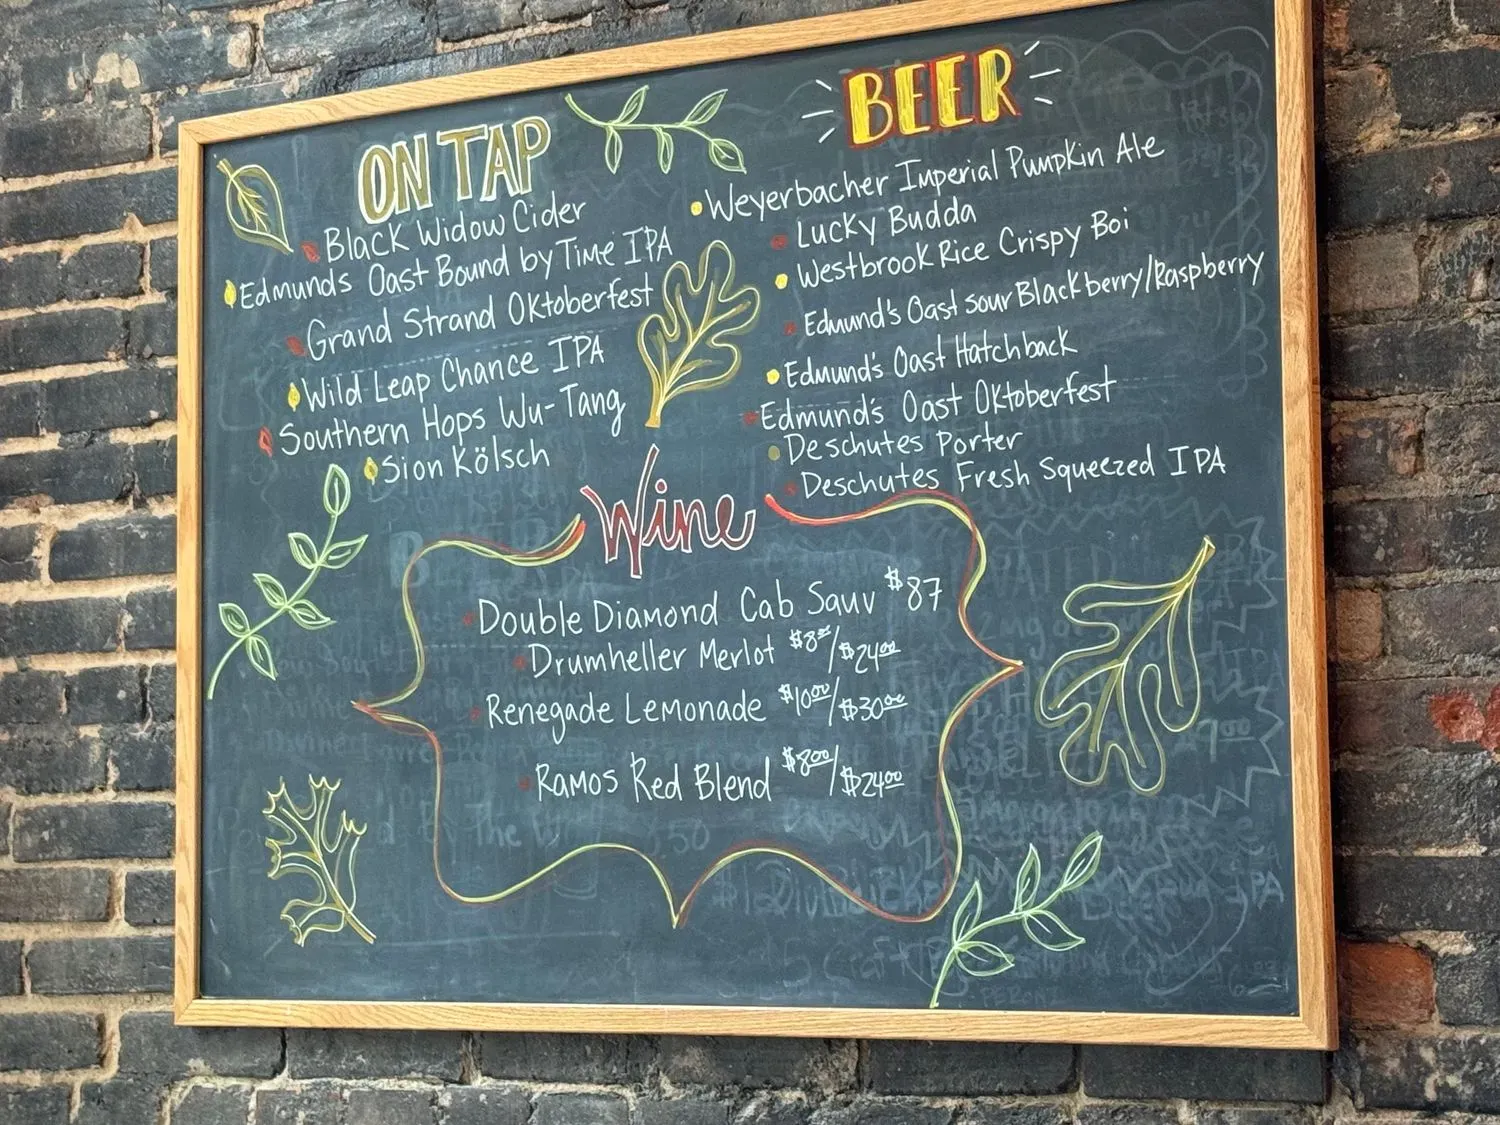 ON TAP
Black Widow Cider
Edmunds Oast Bound by Time IPA
Grand Strand Oktoberfest
Wild Leap Chance IPA
Southern Hops Wu-Tang
Sion Kölsch
BEER
Weyerbacher Imperial Pumpkin Ale
Lucky Budda
Westbrook Rice Crispy Boi
Edmund's Oast Sour Blackberry/Raspberry
Edmund's Oast Hatchback
Edmund's Oast Oktoberfest
Deschutes Porter
Deschutes Fresh Squeezed IPA
Wine
Double Diamond Cab Sauv $87
Drumheller Merlot $8.00/$24.00
Renegade Lemonade $10.00/$30.00
Ramos Red Blend $8.00/$24.00